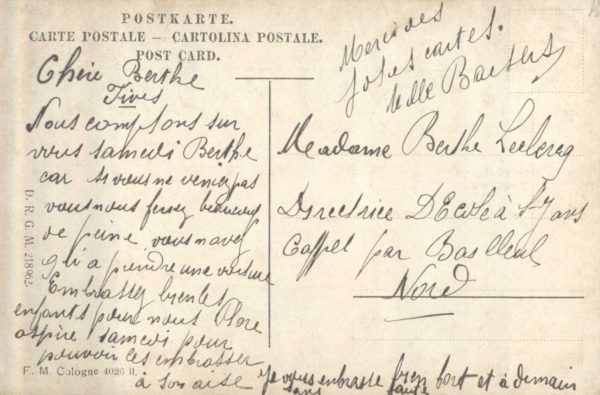 POSTKARTE.
CARTE POSTALE — CARTOLINA POSTALE.
POST CARD.
Merci des
jolies cartes.
Mille Baisers
Chère Berthe
Fives
Nous comptons sur
vous samedi Berthe
car si vous ne veniez pas
vous nous feriez beaucoup
de peine vous n'avez
qu'a prendre une voiture
Embrassez bien les
enfants pour nous Flore
aspire samedi pour
pouvoir les embrasser
à son aise
Je vous embrasse bien fort et à demain
sans faute
Madame Berthe Leclercq
Directrice D'Ecole à St Jans
Cappel par Bailleul
Nord
D. R. G. M. 218962.
F. M. Cologne 4026 II.